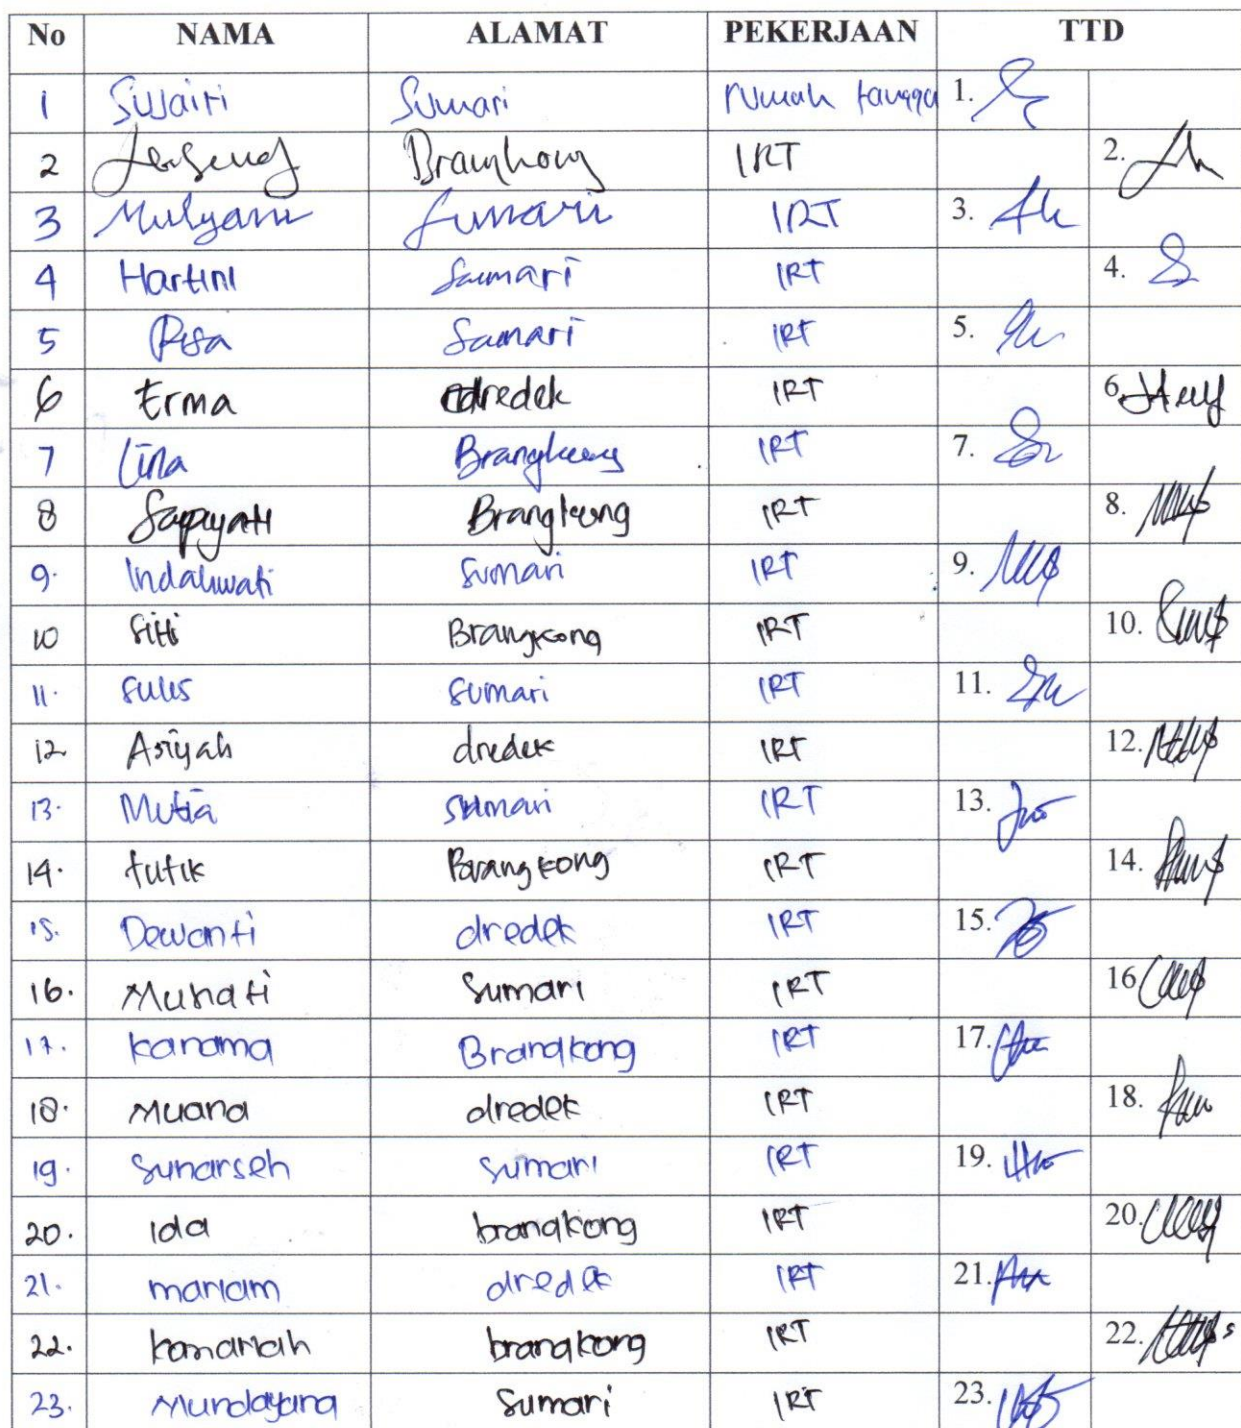 No NAMA ALAMAT PEKERJAAN TTD
1 Suwairi Sumari rumah tangga 1.
2 Brangkong IRT 2.
3 Mulyani Sumari IRT 3.
4 Hartini Sumari IRT 4.
5 Risa Sumari IRT 5.
6 Erma dredek IRT 6.
7 Lina Brangkong IRT 7.
8 Sapiyati Brangkong IRT 8.
9. Indahwati Sumari IRT 9.
10 Siti Brangkong IRT 10.
11. Sulis Sumari IRT 11.
12 Asiyah dredek IRT 12.
13. Mutia Sumari IRT 13.
14. tutik Brangkong IRT 14.
15. Dewanti dredek IRT 15.
16. Munati Sumari IRT 16
17. kanama Brangkong IRT 17.
18. Muana dredek IRT 18.
19. Sunarseh Sumari IRT 19.
20. Ida brangkong IRT 20.
21. mariam dredek IRT 21.
22. kamariah brangkong IRT 22.
23. Mundayana Sumari IRT 23.